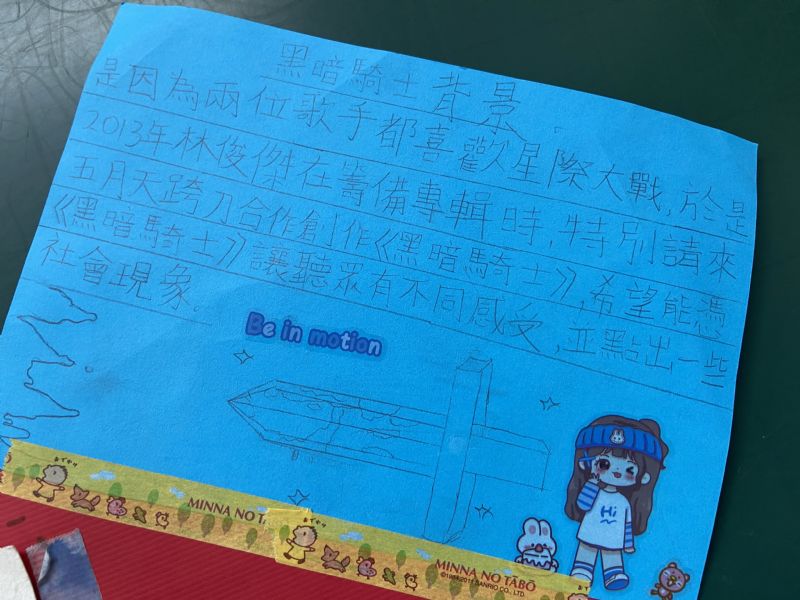 黑暗騎士背景
是因為兩位歌手都喜歡星際大戰,於是
2013年林俊傑在籌備專輯時,特別請來
五月天跨刀合作創作《黑暗騎士》,希望能憑
《黑暗騎士》讓聽眾有不同感受,並點出一些
社會現象。
Be in motion
Hi
おでかけ
MINNA NO TA
おでかけ
MINNA NO TABO